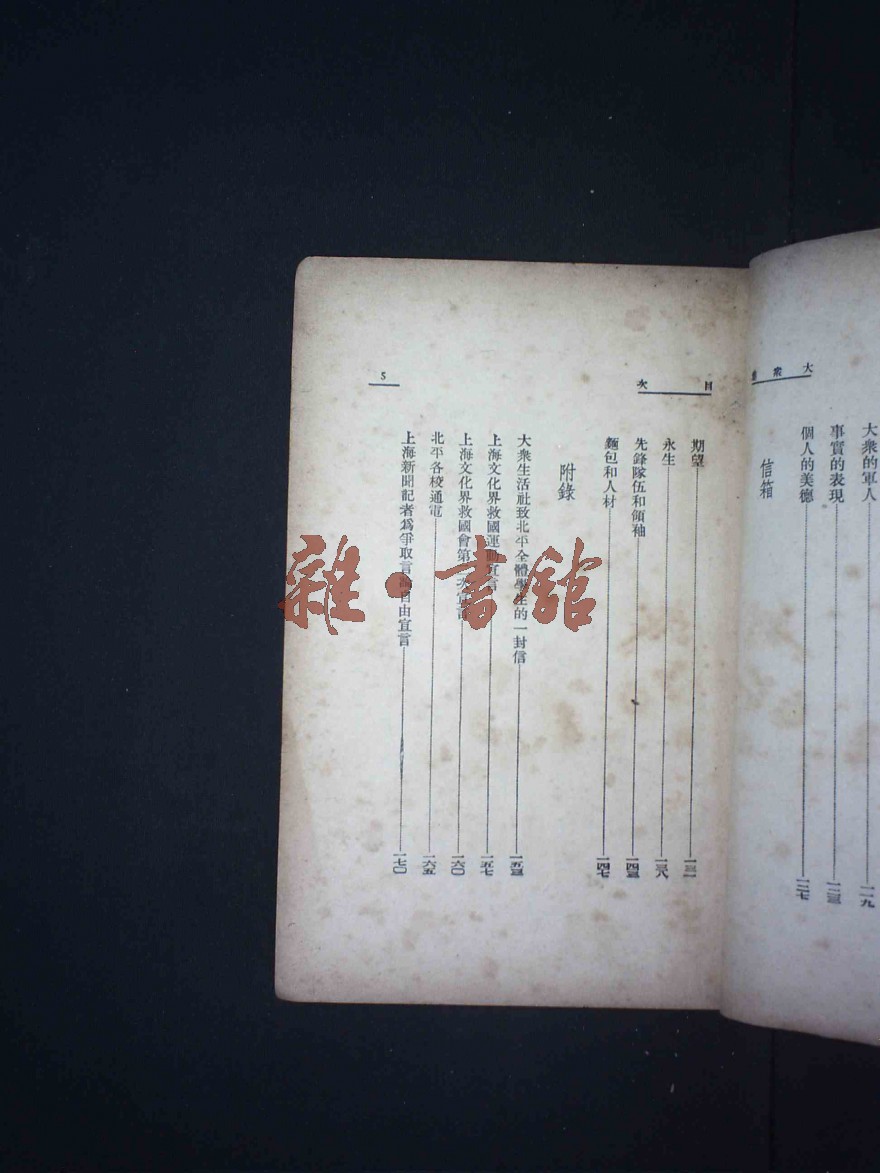 大衆
大衆的軍人 一一九
事實的表現 一二三
個人的美德 一二七
信箱
目次
期望 一三一
永生 一三八
先鋒隊伍和領袖 一四三
麵包和人材 一四七
附錄
大衆生活社致北平全體學生的一封信 一五三
上海文化界救國運動宣言 一五七
上海文化界救國會第二次宣言 一六〇
北平各校通電 一六五
上海新聞記者爲爭取言論自由宣言 一七〇
5
雜·書館